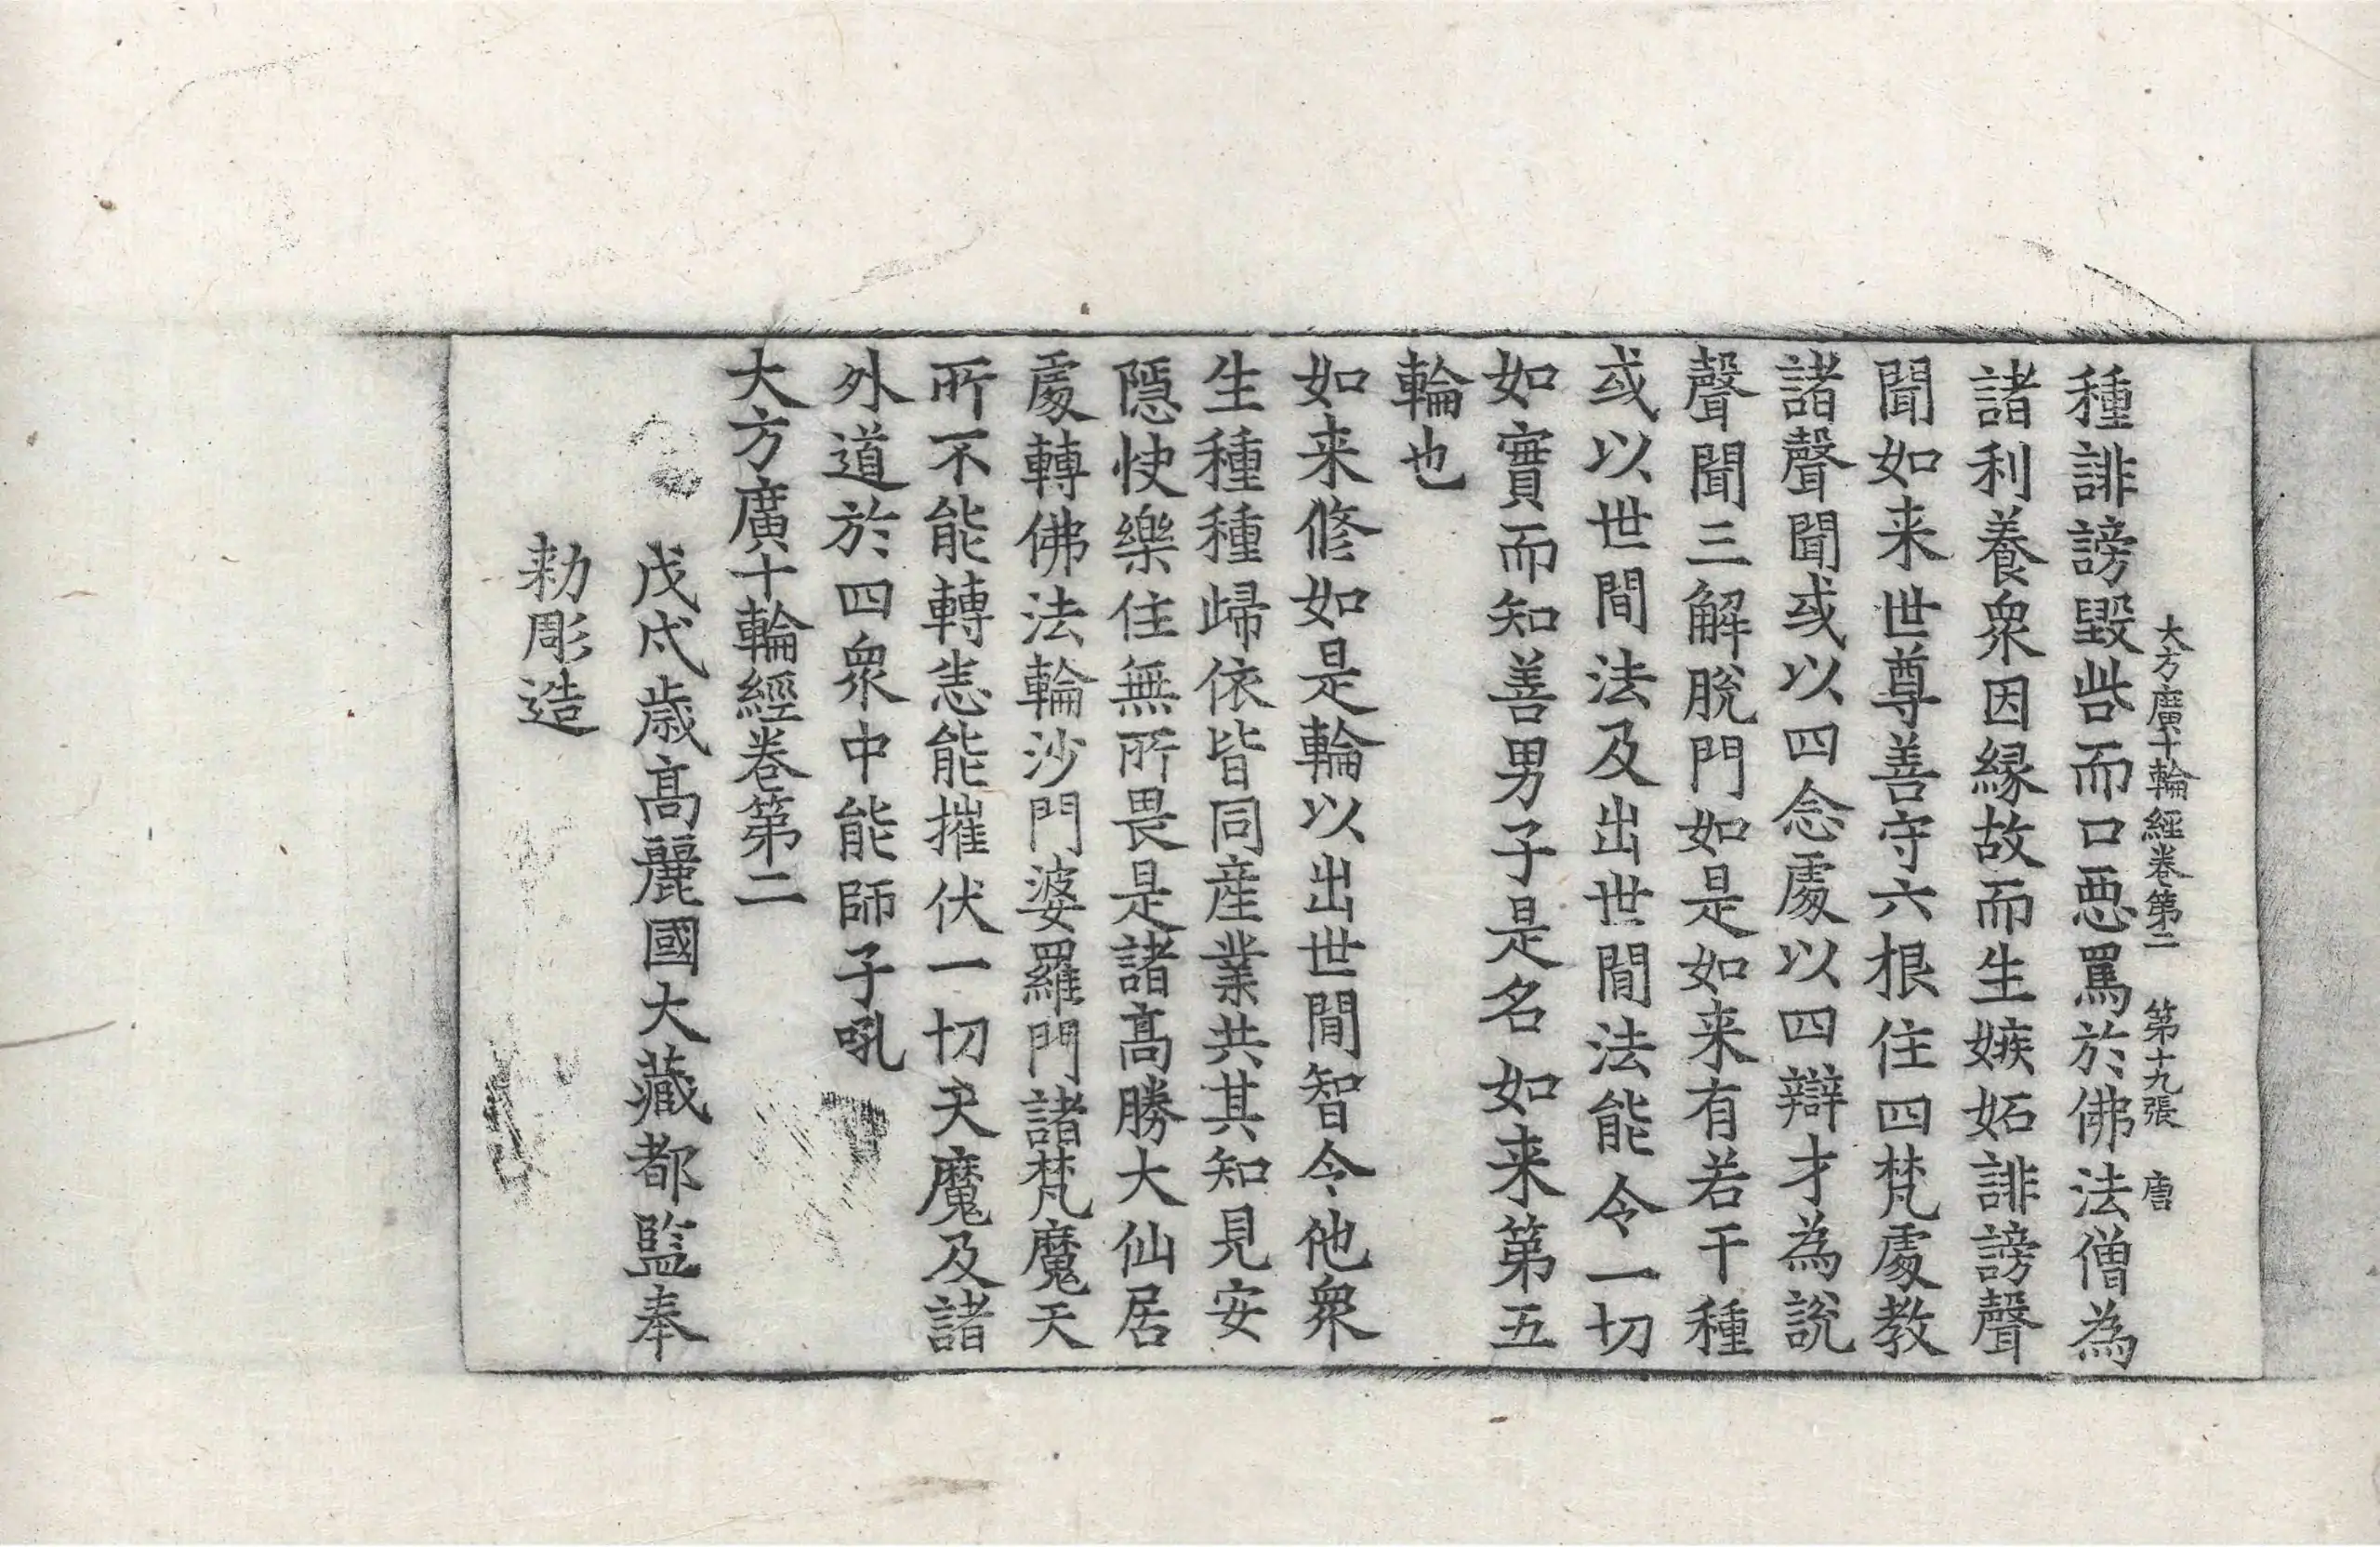 大方廣十輪經卷第二 第十九張 唐
種誹謗毀呰而口惡罵於佛法僧為
諸利養衆因縁故而生嫉妬誹謗聲
聞如来世尊善守六根住四梵處教
諸聲聞或以四念處以四辯才為說
聲聞三解脫門如是如来有若干種
或以世間法及出世間法能令一切
如實而知善男子是名如来第五
輪也
如来修如是輪以出世間智令他衆
生種種歸依皆同産業共其知見安
隱快樂住無所畏是諸髙勝大仙居
處轉佛法輪沙門婆羅門諸梵魔天
所不能轉悉能摧伏一切天魔及諸
外道於四衆中能師子吼
大方廣十輪經卷第二
戊戌歲髙麗國大藏都監奉
勅彫造